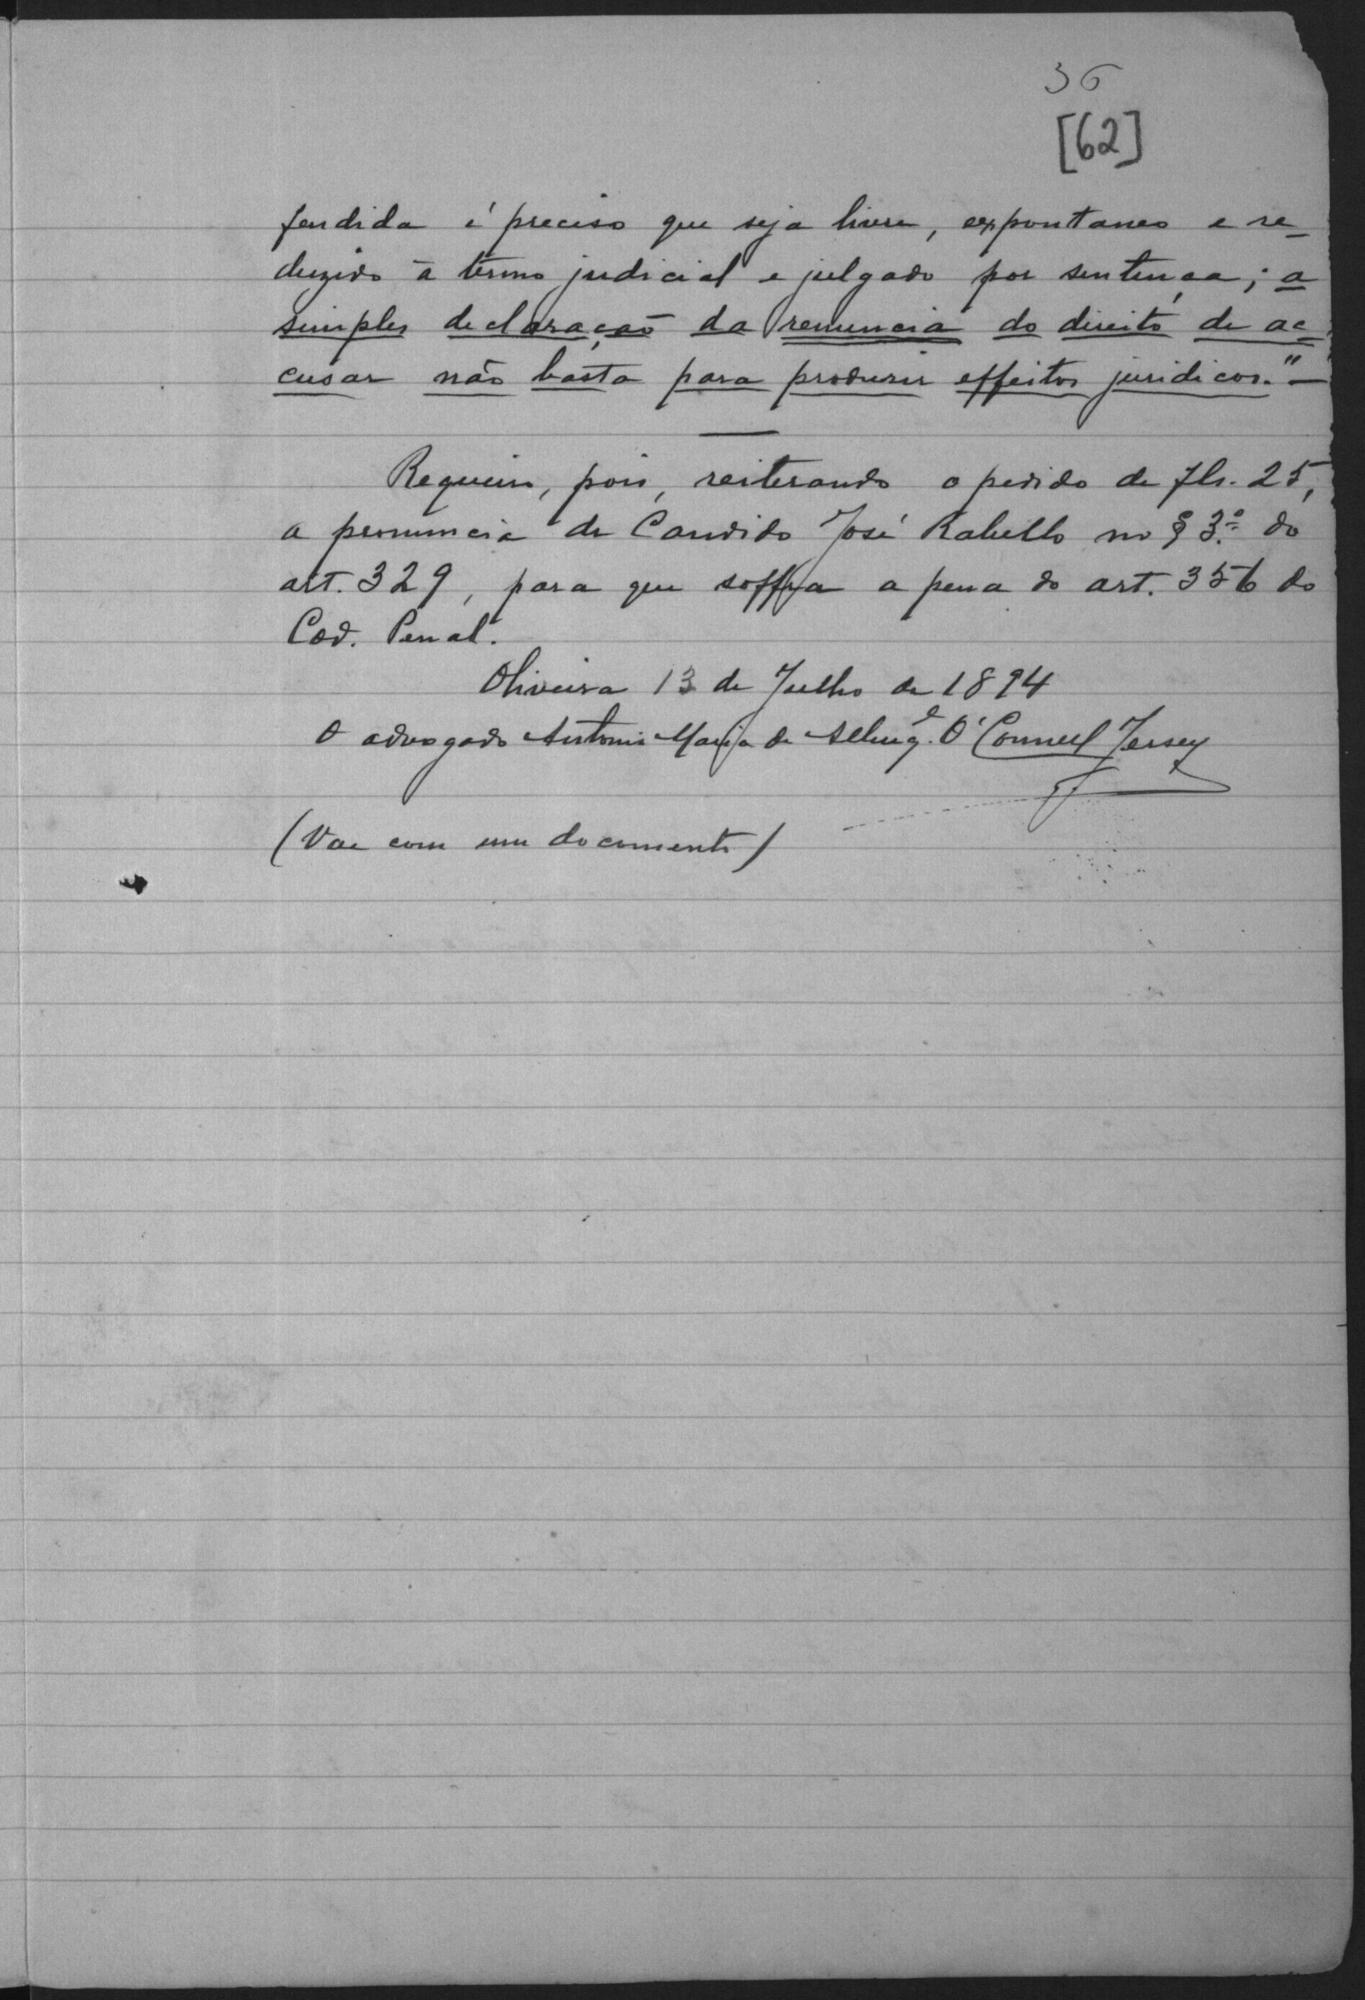 36
[62]
fendida é preciso que seja livre, expontaneo e re-
duzido à termo judicial e julgado por sentença; a
simples declaração da renuncia do direito de ac-
cusar não basta para produzir effeitos juridicos."—
Requeiro, pois, reiterando o pedido de fls. 25,
a pronuncia de Candido José Rabello no § 3.º do
art. 329, para que soffra a pena do art. 356 do
Cod. Penal.
Oliveira 13 de Julho de 1894
O advogado Antonio Maria de Albuq.e O'Connell Jersey
(Vae com um documento)